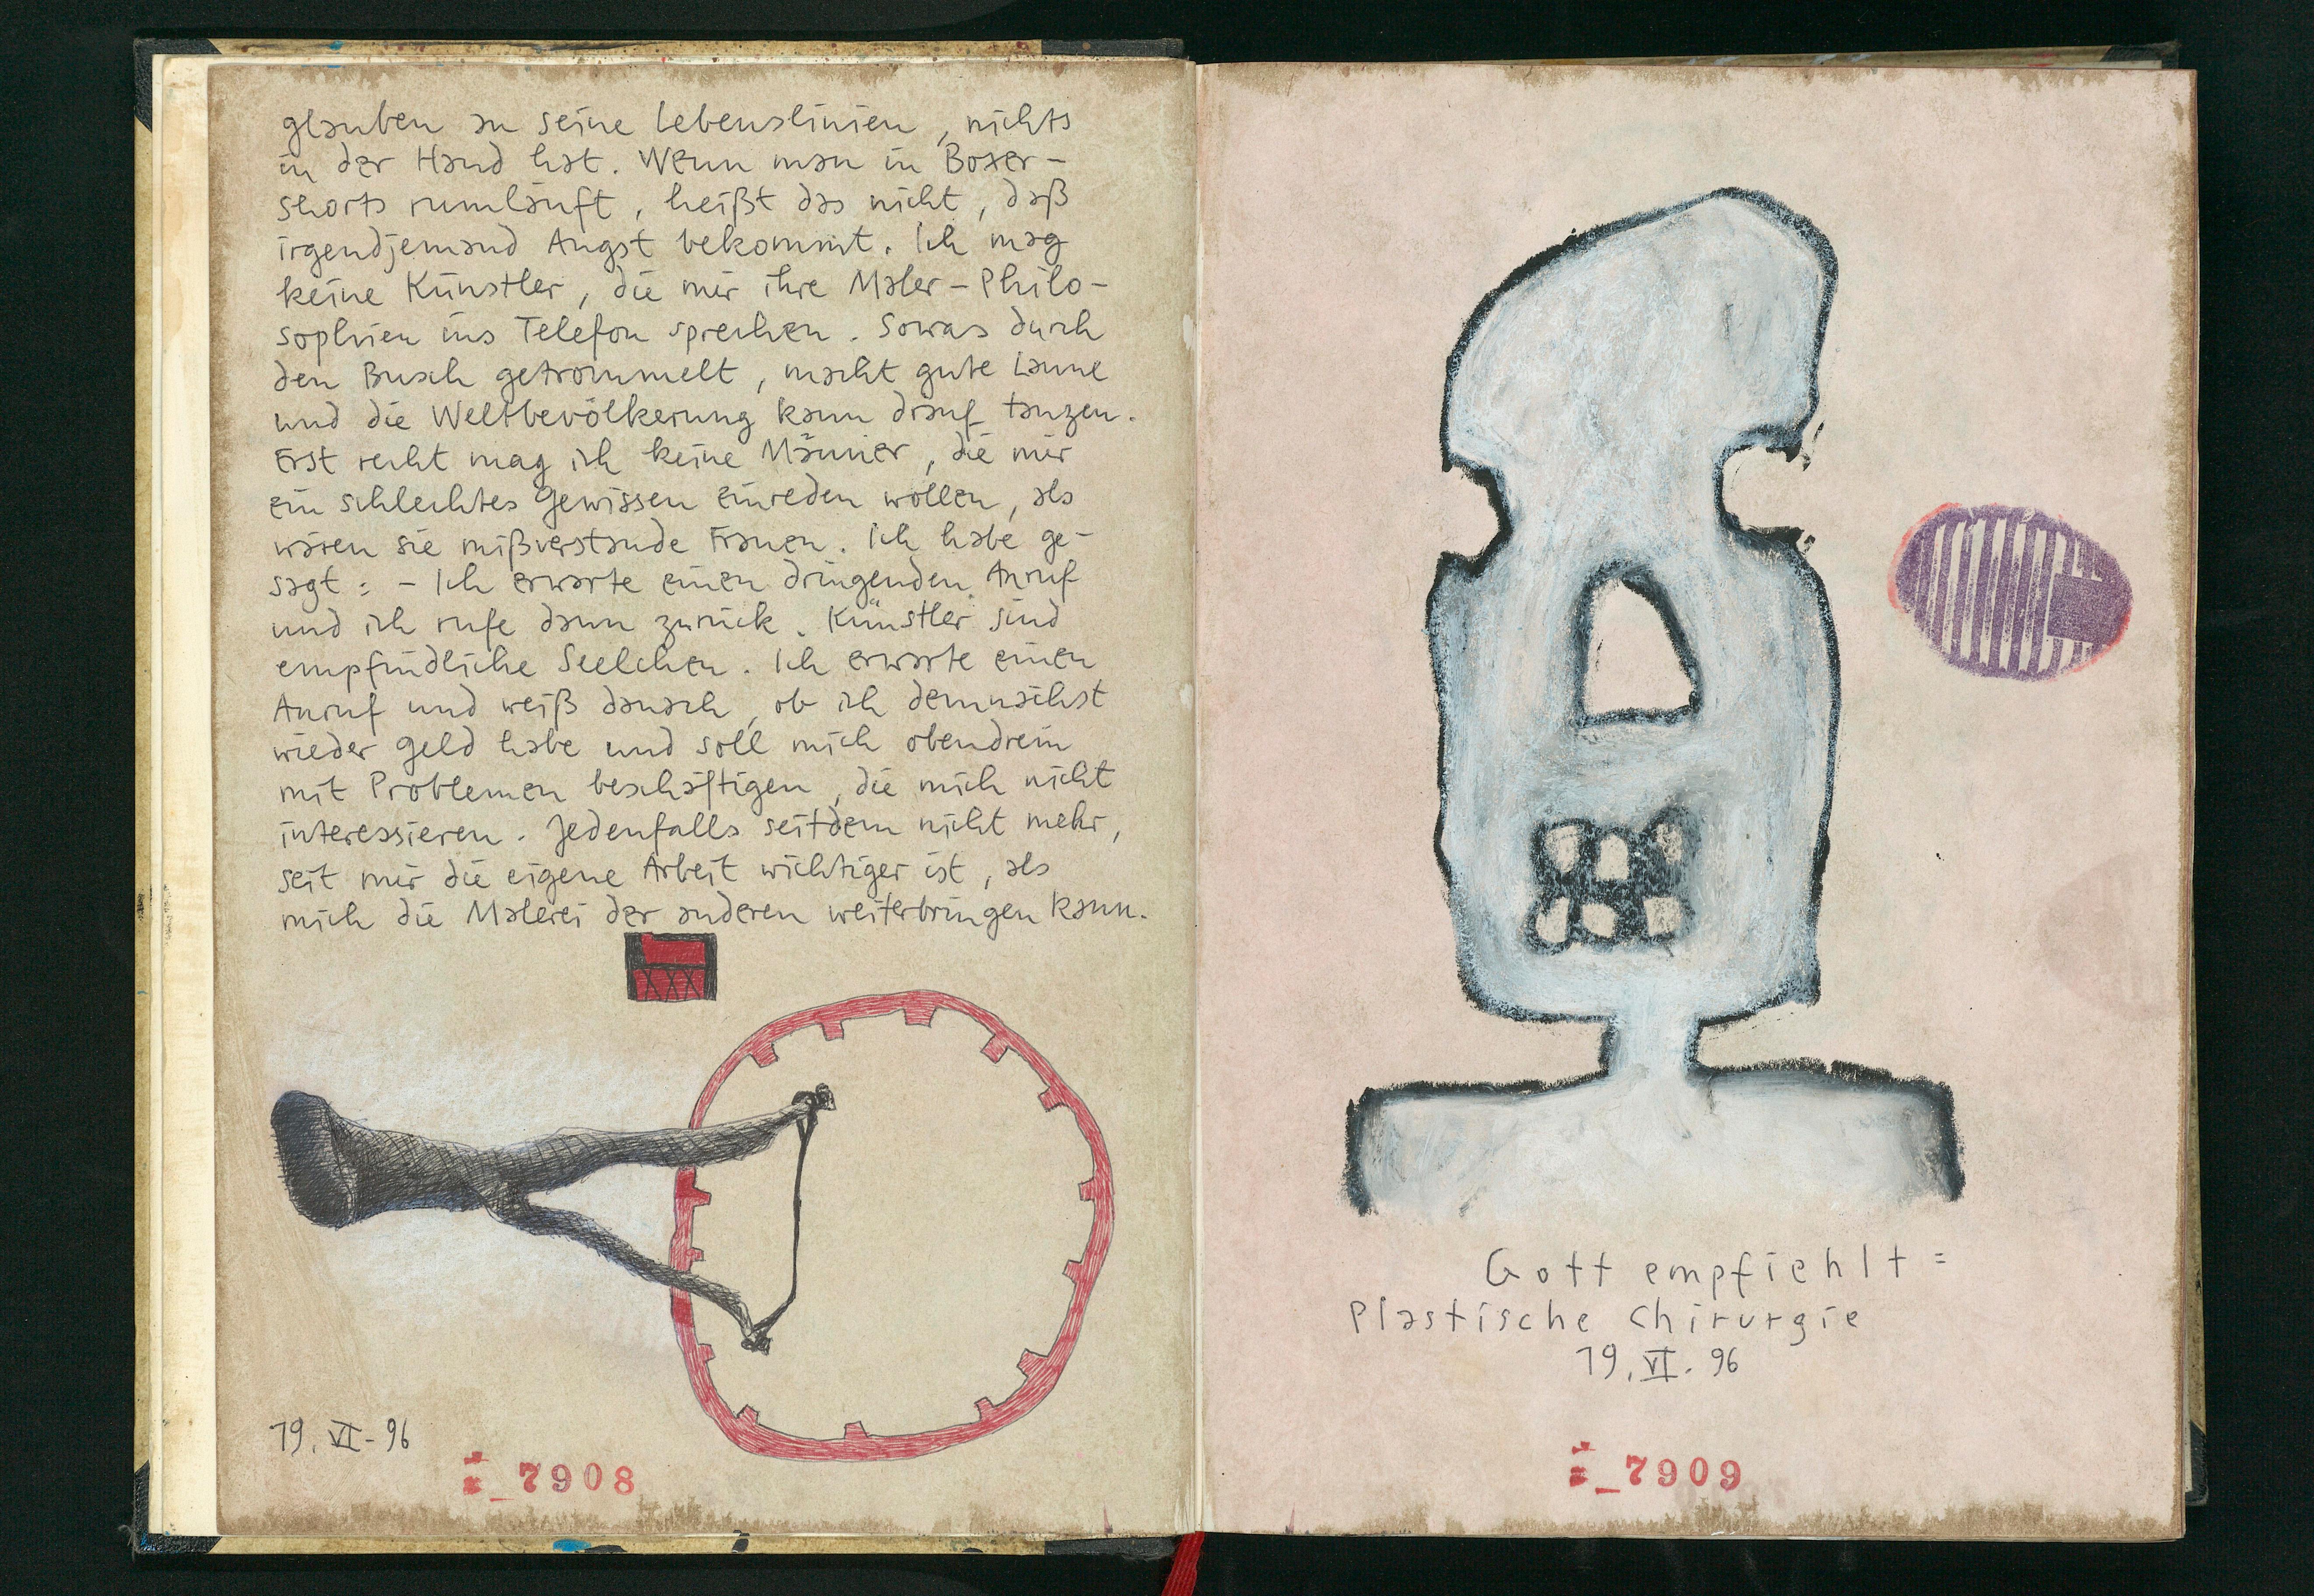 glauben an seine Lebenslinien, nichts
in der Hand hat. Wenn man in Boxer-
shorts rumläuft, heißt das nicht, daß
irgendjemand Angst bekommt. Ich mag
keine Künstler, die mir ihre Maler-Philo-
sophien ins Telefon sprechen. Sowas durch
den Busch getrommelt, macht gute Laune
und die Weltbevölkerung kann drauf tanzen.
Erst recht mag ich keine Männer, die mir
ein schlechtes Gewissen einreden wollen, als
wären sie mißverstande Frauen. Ich habe ge-
sagt: - Ich erwarte einen dringenden Anruf
und ich rufe dann zurück. Künstler sind
empfindliche Seelchen. Ich erwarte einen
Anruf und weiß danach, ob ich demnächst
wieder Geld habe und soll mich obendrein
mit Problemen beschäftigen, die mich nicht
interessieren. Jedenfalls seitdem nicht mehr,
seit mir die eigene Arbeit wichtiger ist, als
mich die Malerei der anderen weiterbringen kann.
19. VI - 96
7908
Gott empfiehlt:
Plastische Chirurgie
19. VI. 96
7909